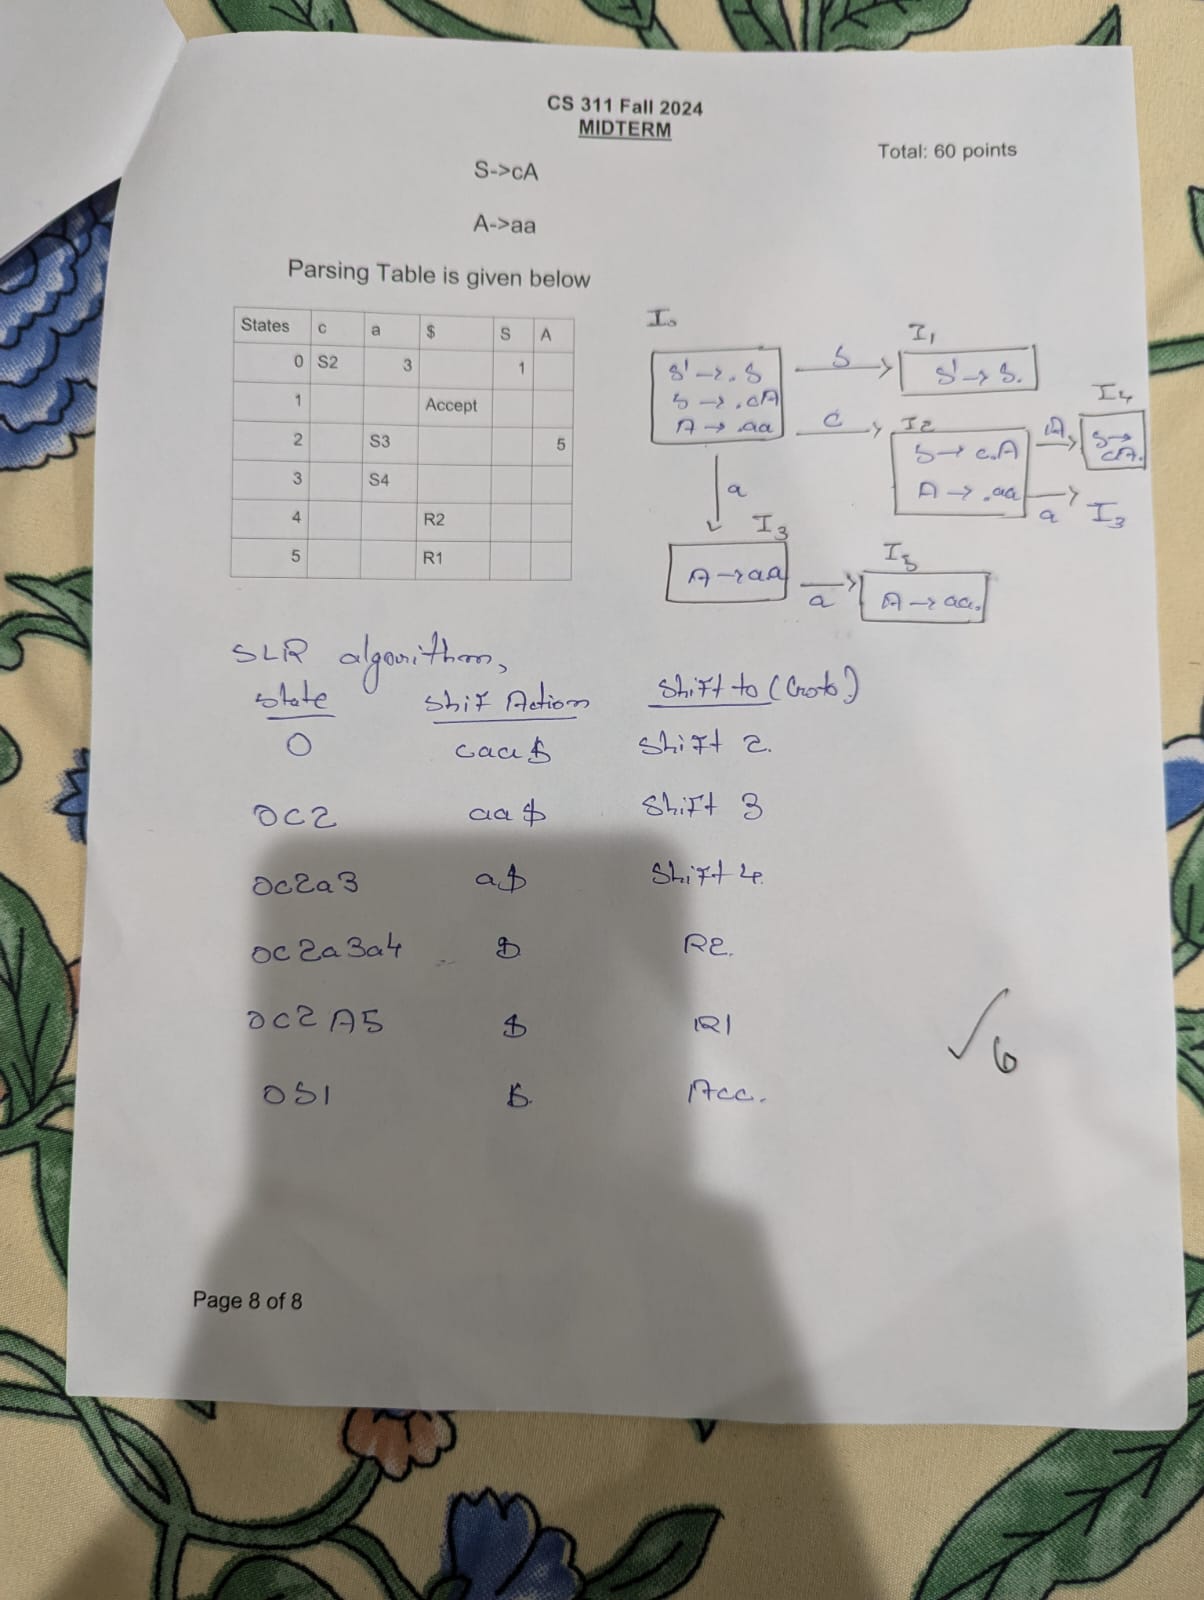 CS 311 Fall 2024
MIDTERM
Total: 60 points
S->cA
A->aa
Parsing Table is given below
States c a $ S A
0 S2 3 1
1 Accept
2 S3 5
3 S4
4 R2
5 R1
I0
S' → . S
S → . cA
A → .aa
S
I1
S' → S.
c
I2
S → c.A
A → .aa
A
I4
S → cA.
a
I3
a
I3
A → aa
a
I5
A → aa.
SLR algorithm,
state Shif Action Shift to (Goto)
0 caa$ Shift 2.
0c2 aa$ Shift 3
0c2a3 a$ Shift 4.
0c2a3a4 $ R2.
0c2A5 $ R1
0S1 $ Acc.
√6
Page 8 of 8